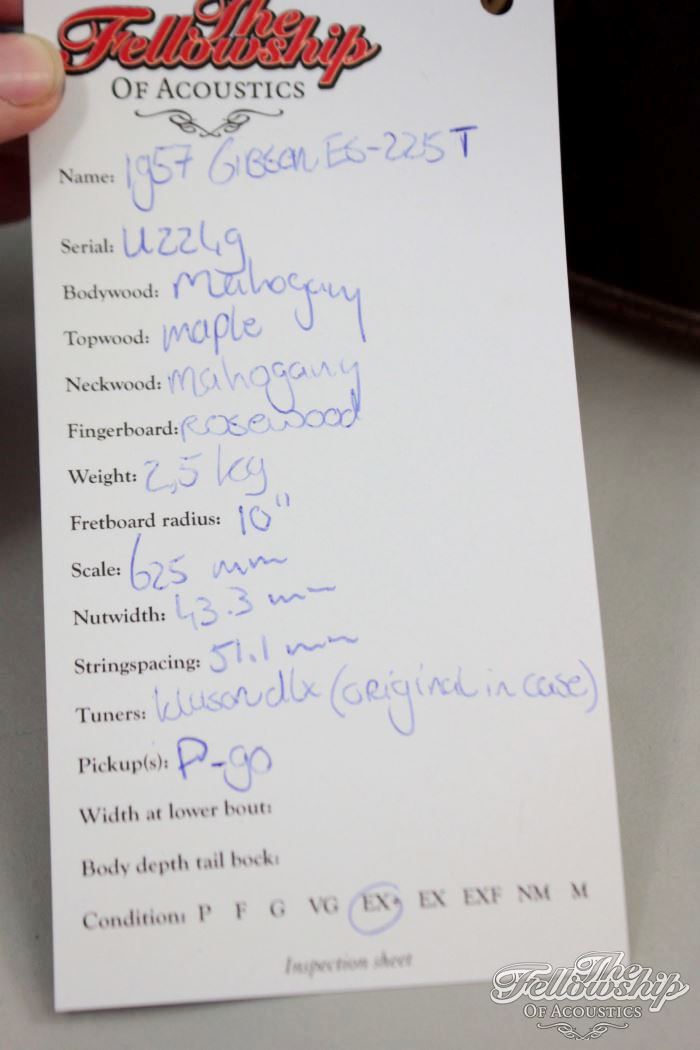 The
Fellowship
OF ACOUSTICS
Name: 1957 GIBSON ES-225T
Serial: U2249
Bodywood: Mahogany
Topwood: maple
Neckwood: mahogany
Fingerboard: rosewood
Weight: 2,5 kg
Fretboard radius: 10"
Scale: 625 mm
Nutwidth: 43.3 mm
Stringspacing: 51.1 mm
Tuners: kluson dlx (original in case)
Pickup(s): P-90
Width at lower bout:
Body depth tail bock:
Condition: P F G VG EX- EX EXF NM M
Inspection sheet
The
Fellowship
OF ACOUSTICS